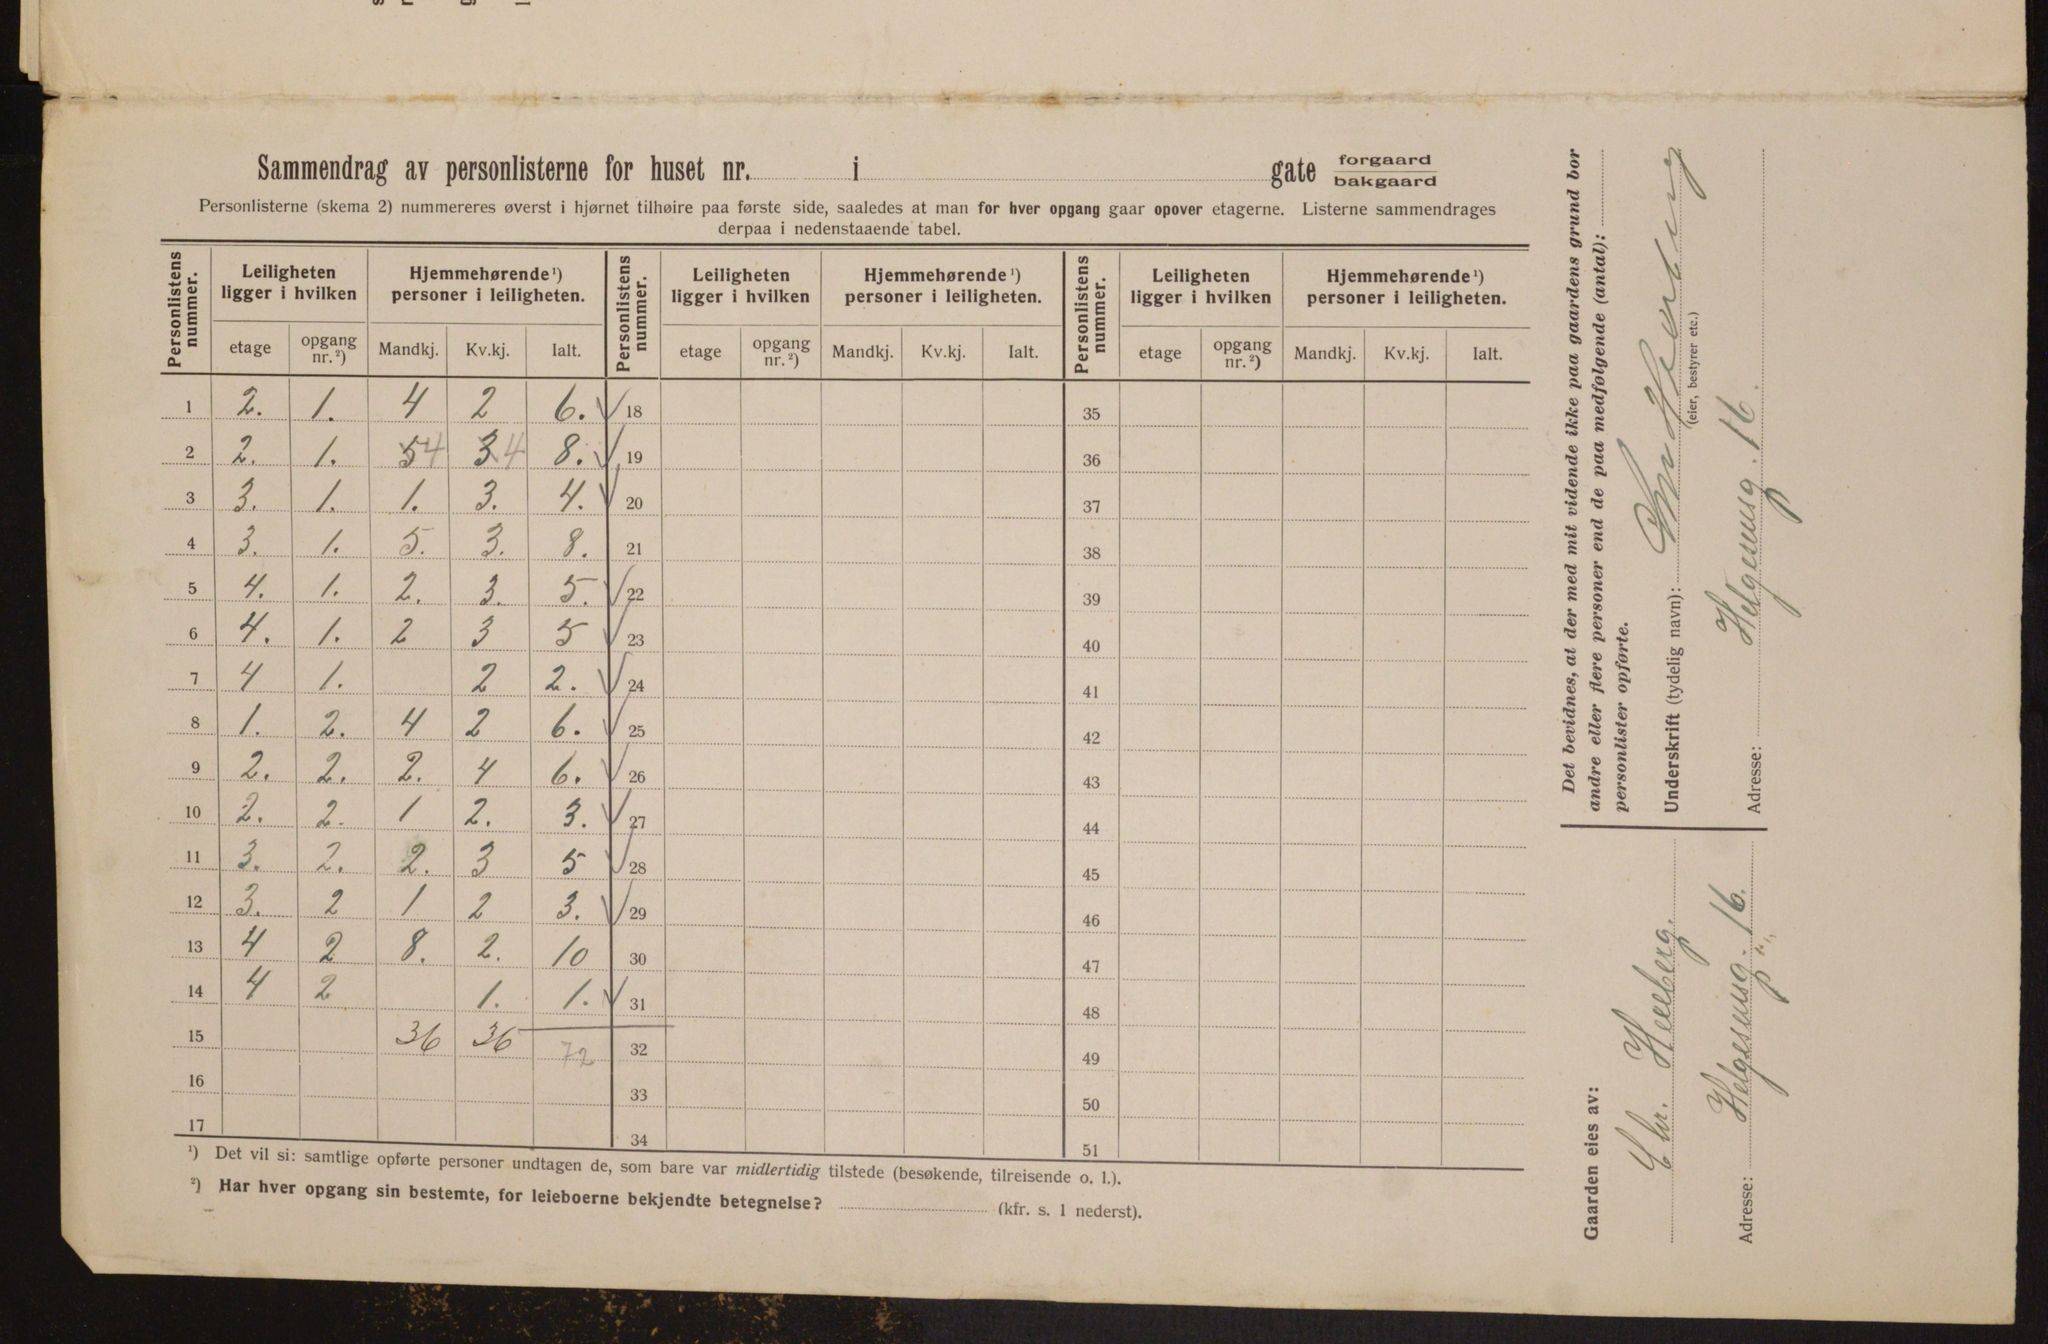 Sammendrag av personlisterne for huset nr. i gate forgaard bakgaard
Personlisterne (skema 2) nummereres øverst i hjørnet tilhøire paa første side, saaledes at man for hver opgang gaar opover etagerne. Listerne sammendrages
derpaa i nedenstaaende tabel.
Personlistens nummer. Leiligheten ligger i hvilken Hjemmehørende¹) personer i leiligheten. Personlistens nummer. Leiligheten ligger i hvilken Hjemmehørende¹) personer i leiligheten. Personlistens nummer. Leiligheten ligger i hvilken Hjemmehørende¹) personer i leiligheten.
etage opgang nr.²) Mandkj. Kv.kj. Ialt. etage opgang nr.²) Mandkj. Kv.kj. Ialt. etage opgang nr.²) Mandkj. Kv.kj. Ialt.
1 2. 1. 4 2 6. ✓ 18 35
2 2. 1. 5 4 3 4 8. ✓ 19 36
3 3. 1. 1. 3. 4. ✓ 20 37
4 3. 1. 5. 3. 8. 21 38
5 4. 1. 2. 3. 5. ✓ 22 39
6 4. 1. 2 3 5 ✓ 23 40
7 4 1. 2 2. ✓ 24 41
8 1. 2. 4 2 6. ✓ 25 42
9 2. 2. 2. 4 6. ✓ 26 43
10 2. 2. 1 2. 3. ✓ 27 44
11 3. 2. 2. 3 5 ✓ 28 45
12 3. 2 1 2 3. ✓ 29 46
13 4 2 8. 2. 10 30 47
14 4 2 1. 1. ✓ 31 48
15 36 36 72 32 49
16 33 50
17 34 51
¹) Det vil si: samtlige opførte personer undtagen de, som bare var midlertidig tilstede (besøkende, tilreisende o. l.).
²) Har hver opgang sin bestemte, for leieboerne bekjendte betegnelse? (kfr. s. 1 nederst).
Det bevidnes, at der med mit vidende ikke paa gaardens grund bor
andre eller flere personer end de paa medfølgende (antal):
personlister opførte.
Underskrift (tydelig navn):
(eier, bestyrer etc.)
Adresse: Helgesensg. 16.
Gaarden eies av:
Chr. Heeberg.
Adresse: Helgesensg. 16.